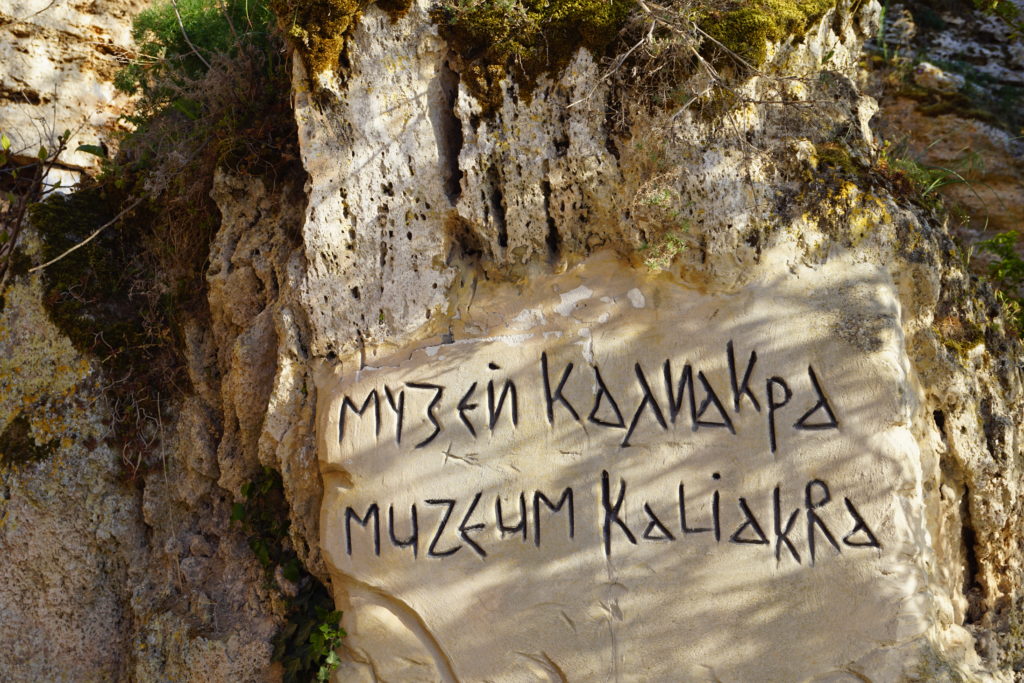 музей Калиакра
muzeum Kaliakra